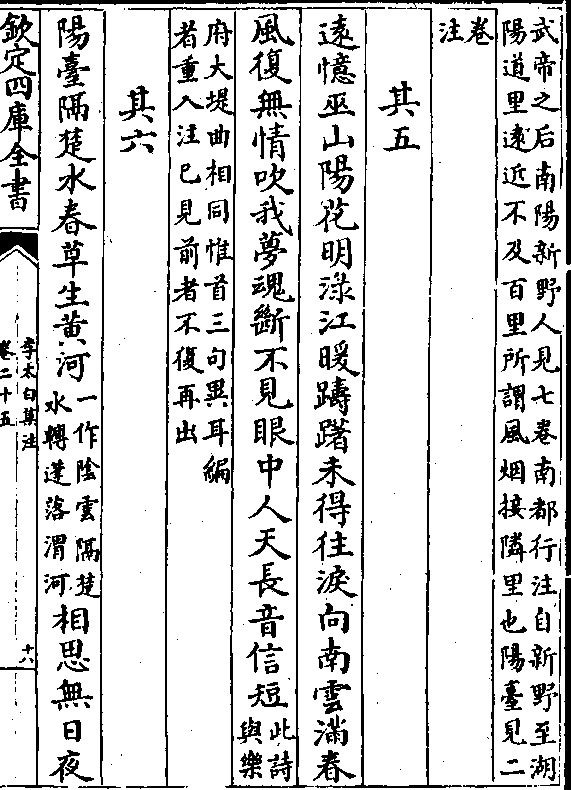 武帝之后南陽新野人見七卷南都行注自新野至湖
陽道里遠近不及百里所謂風烟接隣里也陽臺見二
卷
注
其五
遠憶巫山陽花明淥江暖躊躇未得往淚向南雲滿春
風復無情吹我夢魂斷不見眼中人天長音信短此詩
與樂
府大堤曲相同惟首三句異耳編
者重入注已見前者不復再出
其六
陽臺隔楚水春草生黄河一作陰雲隔楚
水轉蓬落渭河相思無日夜
欽定四庫全書
李太白集注
卷二十五
十六